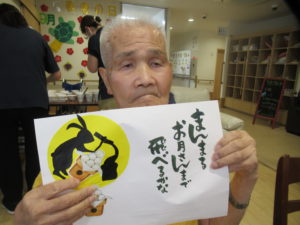 まんまる
お月さんまで
飛べるかな